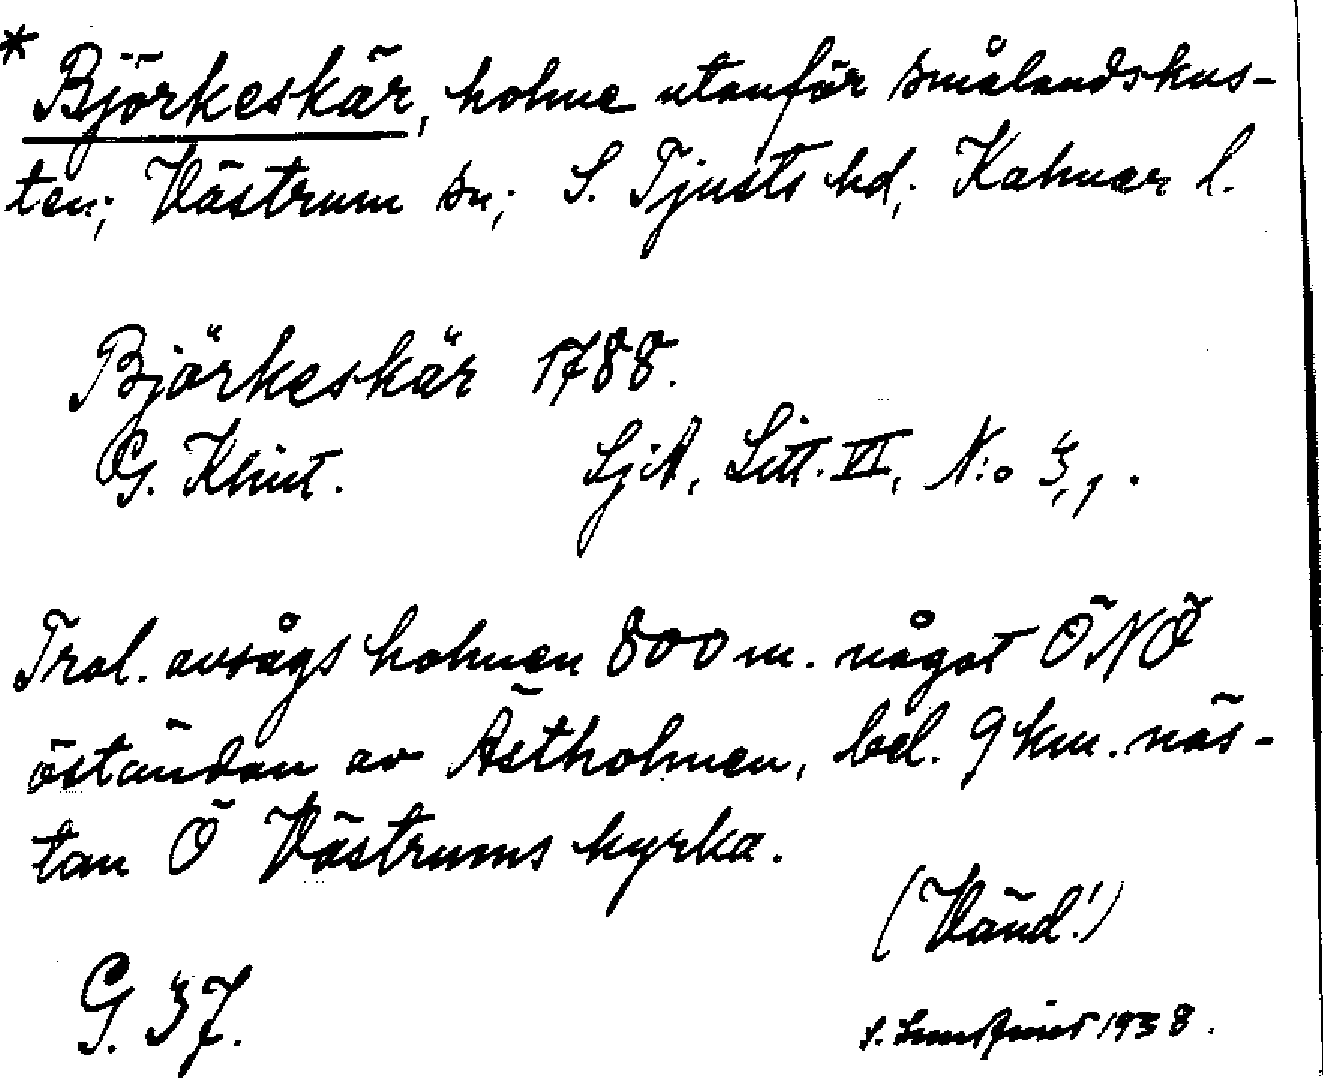 * Björkeskär, holme utanför smålandskus-
ten; Västrum sn; S. Tjusts hd; Kalmar l.
Björkeskär 1788.
G. Klint. SjA, Litt. VI, N:o 3,1.
Trol. avsågs holmen 800 m. något ÖNÖ
östanom av Ästholmen, bel. 9 km. näs-
tan Ö Västrums kyrka.
(Vänd!)
G. 37.
S. 1938.